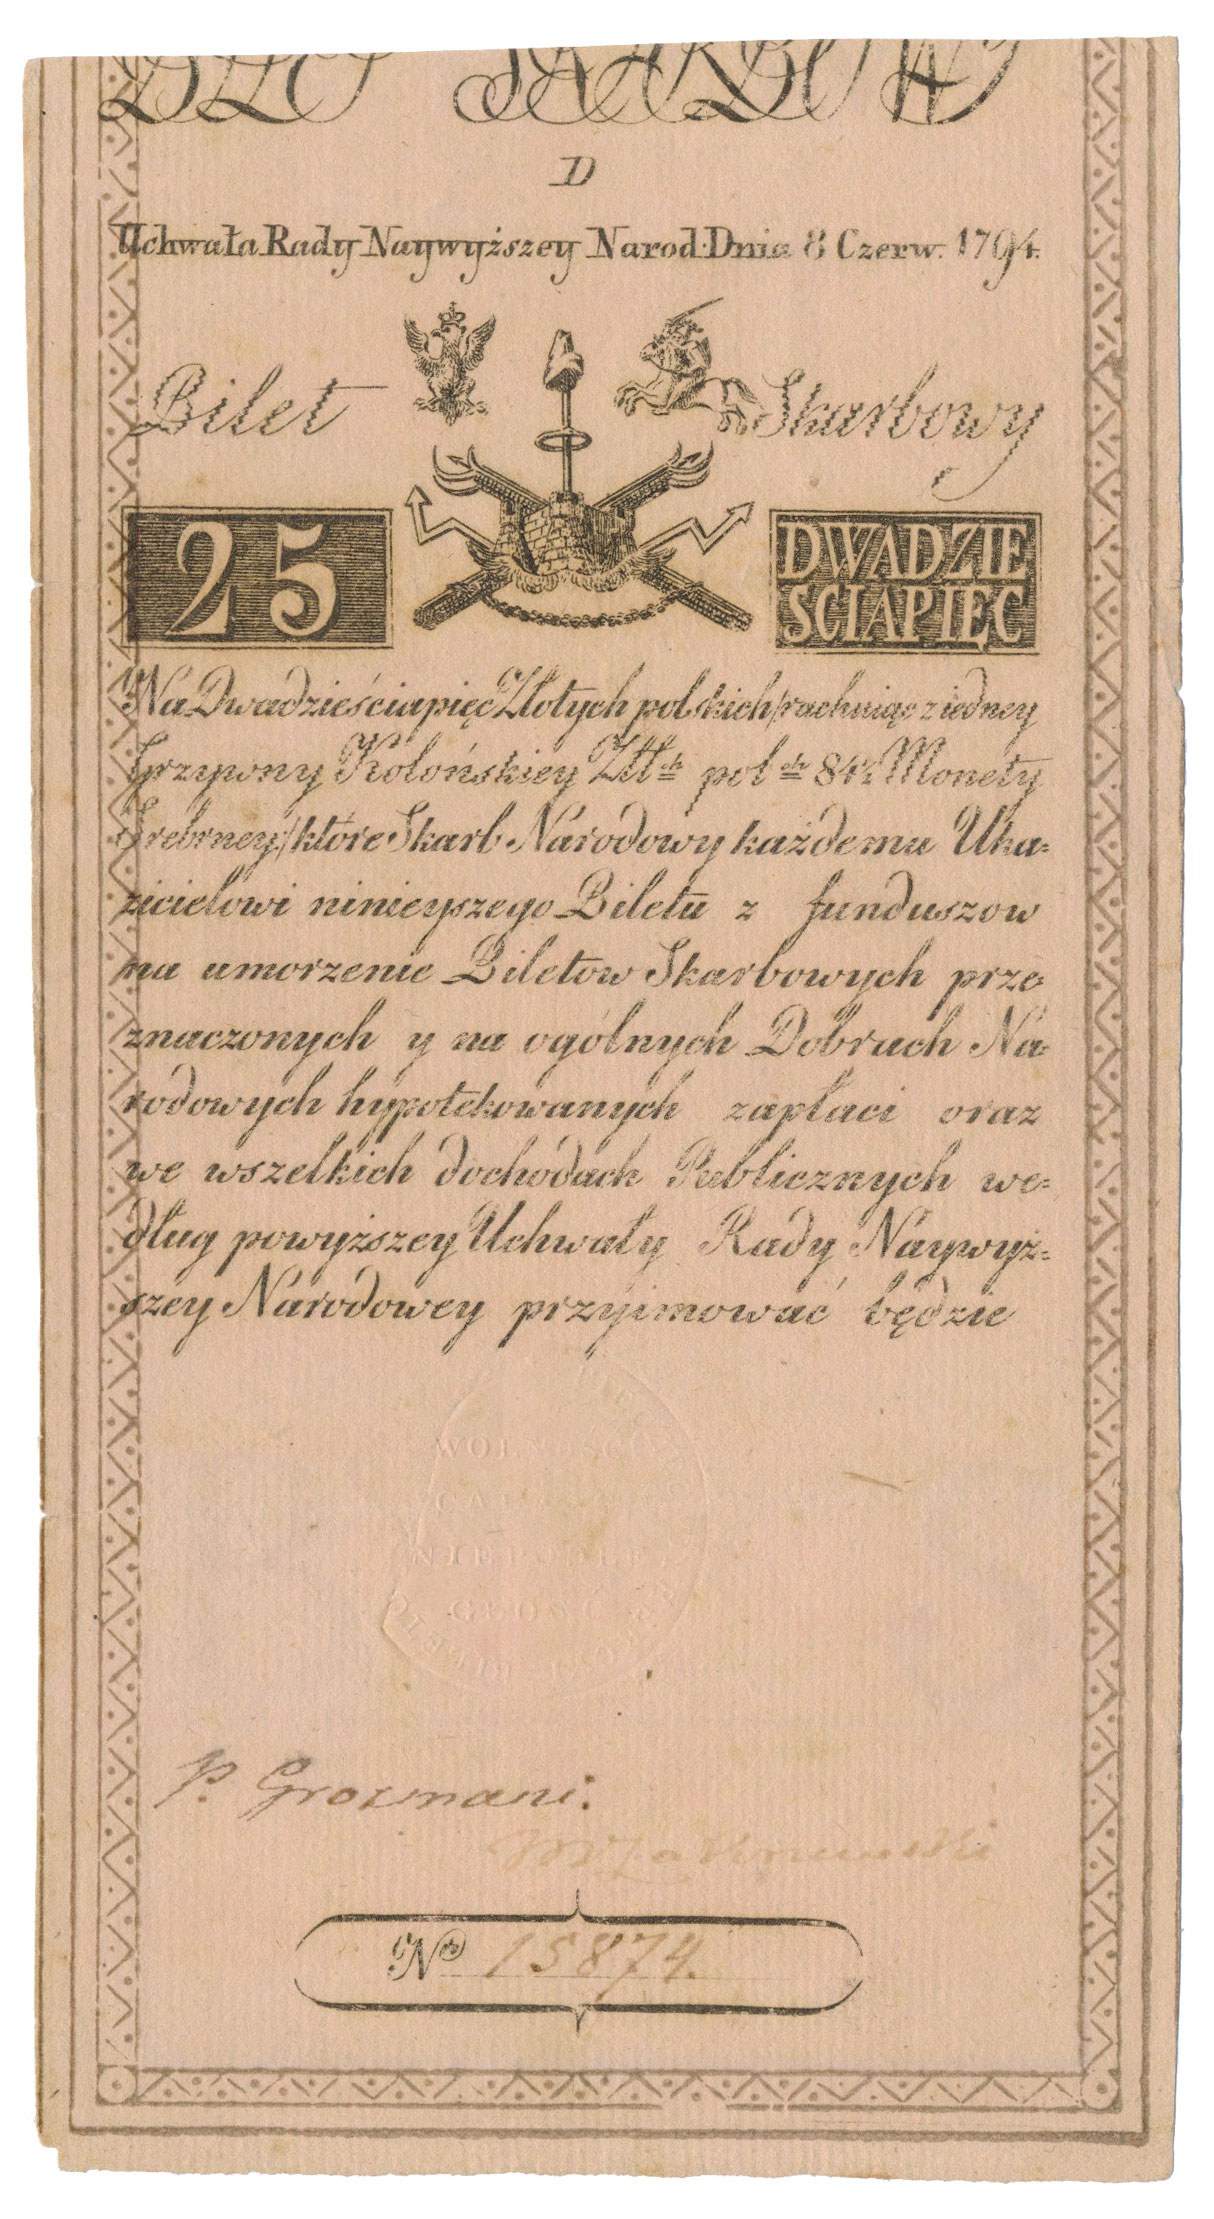 BILET SKARBOWY
D
Uchwała Rady Naywyższey Narod: Dnia 8 Czerw. 1794.
Bilet Skarbowy
25 DWADZIE
ŚCIAPIĘC
Na Dwadzieściapięć Złotych polskich /rachuiąc z iedney
Grzywny Kolońskiey Złł.ch pol.ch 84½ Monety
Srebrney/ które Skarb Narodowy każdemu Uka=
zicielowi ninieyszego Biletu z funduszow
na umorzenie Biletow Skarbowych prze=
znaczonych y na ogólnych Dobrach Na=
rodowych hypotekowanych zapłaci oraz
we wszelkich dochodach Publicznych we=
dług powyższey Uchwały Rady Naywyż=
szey Narodowey przyimować będzie
WOLNOŚĆ
CAŁ
NIEPODLE
GŁOŚĆ
P. Grosmani:
No 15874.